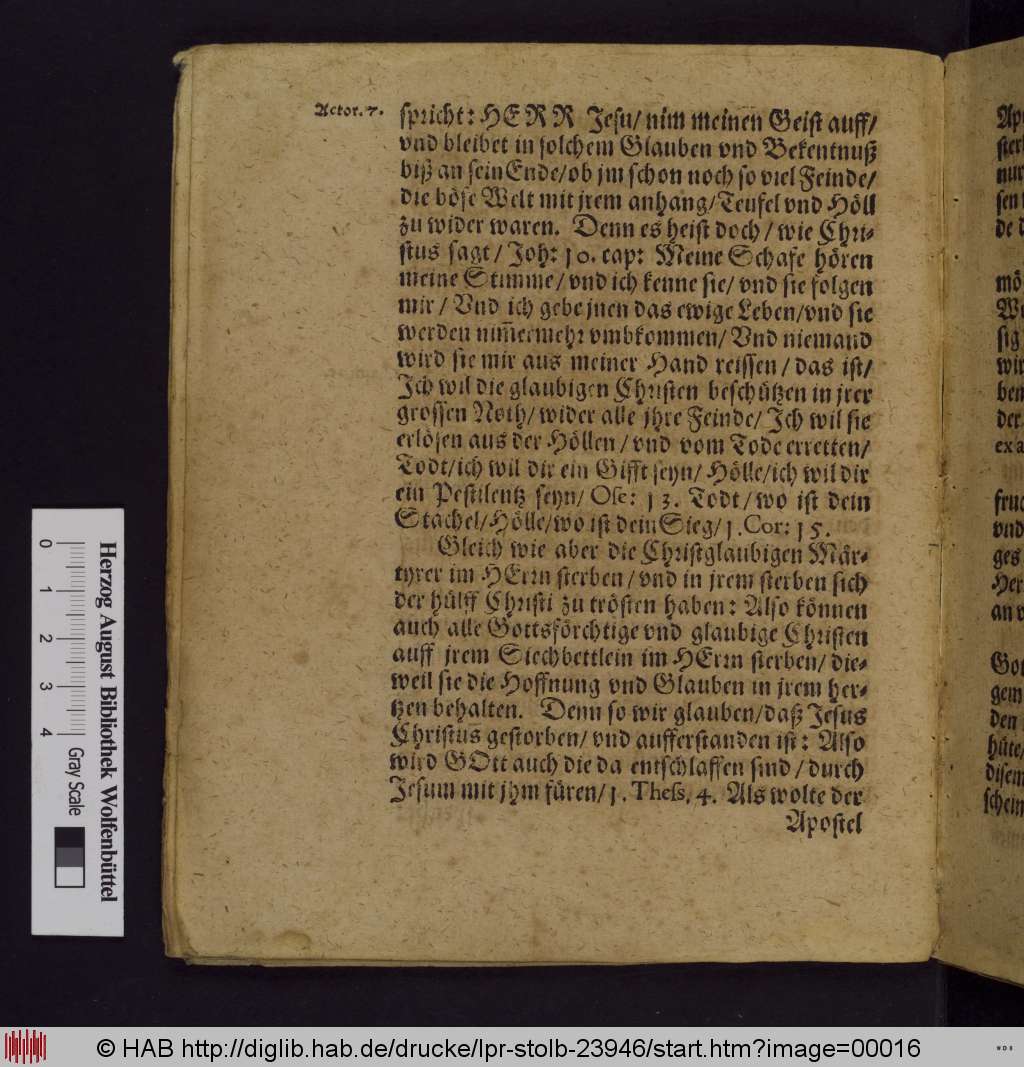 Actor. 7.
spricht: HERR Jesu/ nim meinen Geist auff/
vnd bleibet in solchem Glauben vnd Bekentnuß
biß an sein Ende/ ob jm schon noch so viel Feinde/
die böse Welt mit jrem anhang/ Teufel vnd Höll
zu wider waren. Denn es heist doch/ wie Chri-
stus sagt/ Joh: 10. cap: Meine Schafe hören
meine Stimme/ vnd ich kenne sie/ vnd sie folgen
mir/ Vnd ich gebe jnen das ewige Leben/ vnd sie
werden nim̃ermehr vmbkommen/ Vnd niemand
wird sie mir aus meiner Hand reissen/ das ist/
Ich wil die glaubigen Christen beschützen in jrer
grossen Noth/ wider alle jhre Feinde/ Ich wil sie
erlösen aus der Höllen/ vnd vom Tode erretten/
Todt/ ich wil dir ein Gifft seyn/ Hölle/ ich wil dir
ein Pestilentz seyn/ Ose: 13. Todt/ wo ist dein
Stachel/ Hölle/ wo ist dein Sieg/ 1. Cor: 15.
Gleich wie aber die Christglaubigen Mär-
tyrer im HErrn sterben/ vnd in jrem sterben sich
der hülff Christi zu trösten haben: Also können
auch alle Gottsförchtige vnd glaubige Christen
auff jrem Siechbettlein im HErrn sterben/ die-
weil sie die Hoffnung vnd Glauben in jrem her-
tzen behalten. Denn so wir glauben/ daß Jesus
Christus gestorben/ vnd aufferstanden ist: Also
wird GOtt auch die da entschlaffen sind/ durch
Jesum mit jhm füren/ 1. Thess. 4. Als wolte der
Apostel
Herzog August Bibliothek Wolfenbüttel
0 1 2 3 4
Gray Scale
© HAB http://diglib.hab.de/drucke/lpr-stolb-23946/start.htm?image=00016